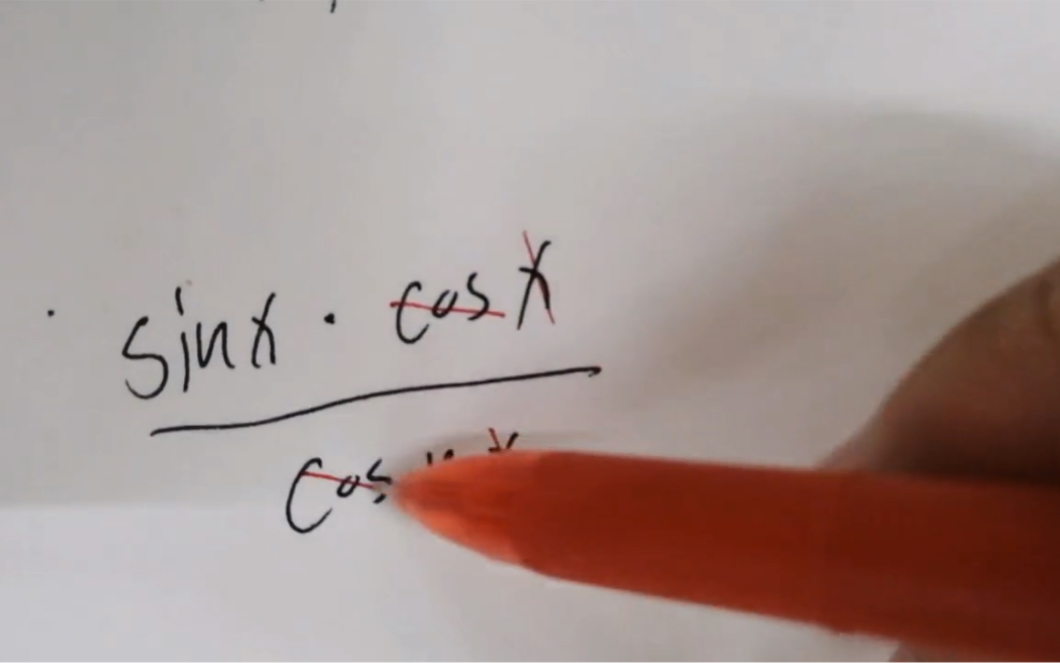 sinx · cosx
cos